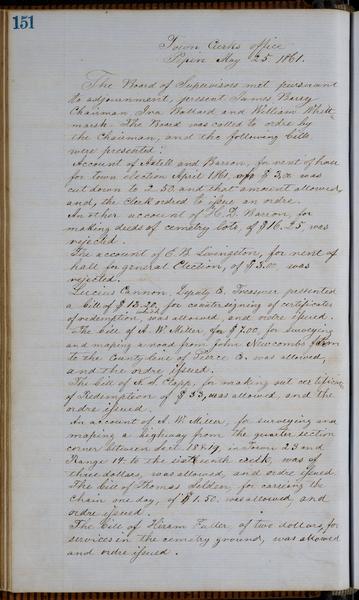 151
Town Clerks office
Pepin May 25 1861.
The Board of Supervisors met pursuant
to adjournment, present James Barry
Chairman, Ira Wallard and William Whit-
marsh. The Board was called to order by
the Chairman, and the following bills
were presented:
Account of Axtell and Barron, for rent of house
for town election April 1861, of $3.00 was
cut down to 2.50 and that amount allowed
and, the Clerk ordred to issue an ordre.
An other account of H. D. Barron, for
making deeds of cemetery lots, of $16.25, was
rejected.
The account of E. B. Livingston, for rent of
hall for general Election, of $3.00 was
rejected.
Lucius Cannon, Deputy C. Treasurer presented
a bill of $13.20, for countersigning of certificates
of redemption, was allowed, and ordre issued.
The bill of A. W. Miller for $7.00, for surveying
and maping a road from John Newcombs farm
to the County line of Pierce C. was allowed,
and the ordre issued.
The bill of A. S. Clapp, for making out certificates
of Redemption of $33, was allowed, and the
ordre issued.
An account of A. W. Miller, for surveying and
maping a highway from the quarter section
corner between Sect. 18 & 19, in Town 23 and
Range 14 to the was of
three dollars, was allowed, and ordre issued.
The bill of Thomas Selden, for carrying the
chain one day, of $1.50. was allowed, and
ordre issued.
The bill of Hiram Fuller of two dollars, for
services in the cemetry ground, was allowed
and ordre issued.